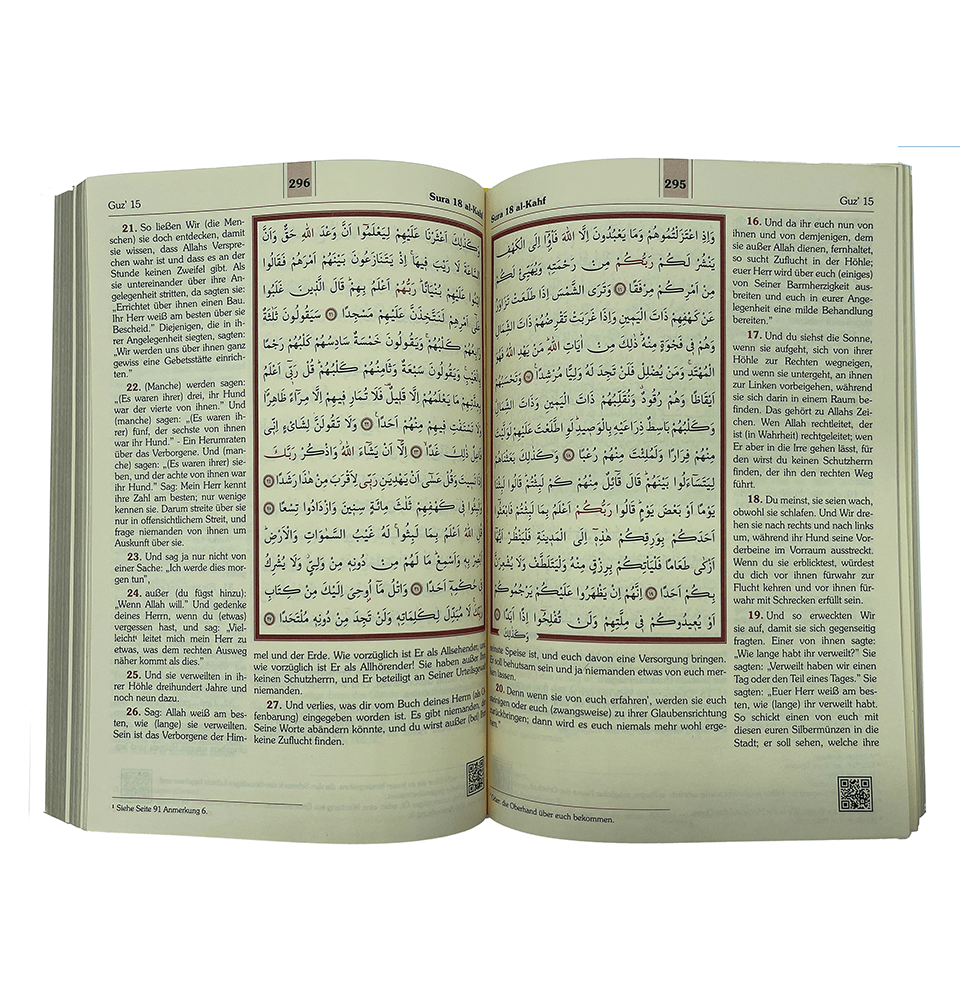 Guz' 15
295
Sura 18 al-Kahf
16. Und da ihr euch nun von
ihnen und von demjenigen, dem
sie außer Allah dienen, fernhaltet,
so sucht Zuflucht in der Höhle;
euer Herr wird über euch (einiges)
von Seiner Barmherzigkeit aus-
breiten und euch in eurer Ange-
legenheit eine milde Behandlung
bereiten.”
17. Und du siehst die Sonne,
wenn sie aufgeht, sich von ihrer
Höhle zur Rechten wegneigen,
und wenn sie untergeht, an ihnen
zur Linken vorbeigehen, während
sie sich darin in einem Raum be-
finden. Das gehört zu Allahs Zei-
chen. Wen Allah rechtleitet, der
ist (in Wahrheit) rechtgeleitet; wen
Er aber in die Irre gehen lässt, für
den wirst du keinen Schutzherrn
finden, der ihn den rechten Weg
führt.
18. Du meinst, sie seien wach,
obwohl sie schlafen. Und Wir dre-
hen sie nach rechts und nach links
um, während ihr Hund seine Vor-
derbeine im Vorraum ausstreckt.
Wenn du sie erblicktest, würdest
du dich vor ihnen fürwahr zur
Flucht kehren und vor ihnen für-
wahr mit Schrecken erfüllt sein.
19. Und so erweckten Wir
sie auf, damit sie sich gegenseitig
fragten. Einer von ihnen sagte:
„Wie lange habt ihr verweilt?” Sie
sagten: „Verweilt haben wir einen
Tag oder den Teil eines Tages.” Sie
sagten: „Euer Herr weiß am bes-
ten, wie (lange) ihr verweilt habt.
So schickt einen von euch mit
diesen euren Silbermünzen in die
Stadt; er soll sehen, welche ihre
وَاِذِ اعْتَزَلْتُمُوهُمْ وَمَا يَعْبُدُونَ اِلَّا اللّٰهَ فَأْوُٓا اِلَى الْكَهْفِ
يَنْشُرْ لَكُمْ رَبُّكُمْ مِنْ رَحْمَتِه۪ وَيُهَيِّئْ لَكُمْ
مِنْ اَمْرِكُمْ مِرْفَقًا ﴿١٦﴾ وَتَرَى الشَّمْسَ اِذَا طَلَعَتْ تَزَاوَرُ
عَنْ كَهْفِهِمْ ذَاتَ الْيَم۪ينِ وَاِذَا غَرَبَتْ تَقْرِضُهُمْ ذَاتَ الشِّمَالِ
وَهُمْ ف۪ي فَجْوَةٍ مِنْهُ ذٰلِكَ مِنْ اٰيَاتِ اللّٰهِ مَنْ يَهْدِ اللّٰهُ فَهُوَ
الْمُهْتَدِ وَمَنْ يُضْلِلْ فَلَنْ تَجِدَ لَهُ وَلِيًّا مُرْشِدًا ﴿١٧﴾ وَتَحْسَبُهُمْ
اَيْقَاظًا وَهُمْ رُقُودٌ وَنُقَلِّبُهُمْ ذَاتَ الْيَم۪ينِ وَذَاتَ الشِّمَالِ
وَكَلْبُهُمْ بَاسِطٌ ذِرَاعَيْهِ بِالْوَص۪يدِ لَوِ اطَّلَعْتَ عَلَيْهِمْ لَوَلَّيْتَ
مِنْهُمْ فِرَارًا وَلَمُلِئْتَ مِنْهُمْ رُعْبًا ﴿١٨﴾ وَكَذٰلِكَ بَعَثْنَاهُمْ
لِيَتَسَٓاءَلُوا بَيْنَهُمْ قَالَ قَٓائِلٌ مِنْهُمْ كَمْ لَبِثْتُمْ قَالُوا لَبِثْنَا
يَوْمًا اَوْ بَعْضَ يَوْمٍ قَالُوا رَبُّكُمْ اَعْلَمُ بِمَا لَبِثْتُمْ فَابْعَثُٓوا
اَحَدَكُمْ بِوَرِقِكُمْ هٰذِه۪ٓ اِلَى الْمَد۪ينَةِ فَلْيَنْظُرْ اَيُّهَٓا
اَزْكٰى طَعَامًا فَلْيَأْتِكُمْ بِرِزْقٍ مِنْهُ وَلْيَتَلَطَّفْ وَلَا يُشْعِرَنَّ
بِكُمْ اَحَدًا ﴿١٩﴾ اِنَّهُمْ اِنْ يَظْهَرُوا عَلَيْكُمْ يَرْجُمُوكُمْ
اَوْ يُع۪يدُوكُمْ ف۪ي مِلَّتِهِمْ وَلَنْ تُفْلِحُٓوا اِذًا اَبَدًا ﴿٢٠﴾
وَكَذٰلِكَ
reinste Speise ist, und euch davon eine Versorgung bringen.
Er soll behutsam sein und ja niemanden etwas von euch mer-
ken lassen.
20. Denn wenn sie von euch erfahren¹, werden sie euch
steinigen oder euch (zwangsweise) zu ihrer Glaubensrichtung
zurückbringen; dann wird es euch niemals mehr wohl erge-
hen.”
¹ Oder: die Oberhand über euch bekommen.
Guz' 15
296
Sura 18 al-Kahf
21. So ließen Wir (die Men-
schen) sie doch entdecken, damit
sie wissen, dass Allahs Verspre-
chen wahr ist und dass es an der
Stunde keinen Zweifel gibt. Als
sie untereinander über ihre An-
gelegenheit stritten, da sagten sie:
„Errichtet über ihnen einen Bau.
Ihr Herr weiß am besten über sie
Bescheid.” Diejenigen, die in ih-
rer Angelegenheit siegten, sagten:
„Wir werden uns über ihnen ganz
gewiss eine Gebetsstätte einrich-
ten.”
22. (Manche) werden sagen:
„(Es waren ihrer) drei, ihr Hund
war der vierte von ihnen.” Und
(manche) sagen: „(Es waren ih-
rer) fünf, der sechste von ihnen
war ihr Hund.” - Ein Herumraten
über das Verborgene. Und (man-
che) sagen: „(Es waren ihrer) sie-
ben, und der achte von ihnen war
ihr Hund.” Sag: Mein Herr kennt
ihre Zahl am besten; nur wenige
kennen sie. Darum streite über sie
nur in offensichtlichem Streit, und
frage niemanden von ihnen um
Auskunft über sie.
23. Und sag ja nur nicht von
einer Sache: „Ich werde dies mor-
gen tun”,
24. außer (du fügst hinzu):
„Wenn Allah will.” Und gedenke
deines Herrn, wenn du (etwas)
vergessen hast, und sag: „Viel-
leicht¹ leitet mich mein Herr zu
etwas, was dem rechten Ausweg
näher kommt als dies.”
25. Und sie verweilten in ih-
rer Höhle dreihundert Jahre und
noch neun dazu.
26. Sag: Allah weiß am bes-
ten, wie (lange) sie verweilten.
Sein ist das Verborgene der Him-
وَكَذٰلِكَ اَعْثَرْنَا عَلَيْهِمْ لِيَعْلَمُٓوا اَنَّ وَعْدَ اللّٰهِ حَقٌّ وَاَنَّ
السَّاعَةَ لَا رَيْبَ ف۪يهَا اِذْ يَتَنَازَعُونَ بَيْنَهُمْ اَمْرَهُمْ فَقَالُوا
ابْنُوا عَلَيْهِمْ بُنْيَانًا رَبُّهُمْ اَعْلَمُ بِهِمْ قَالَ الَّذ۪ينَ غَلَبُوا
عَلٰٓى اَمْرِهِمْ لَنَتَّخِذَنَّ عَلَيْهِمْ مَسْجِدًا ﴿٢١﴾ سَيَقُولُونَ ثَلٰثَةٌ
رَابِعُهُمْ كَلْبُهُمْ وَيَقُولُونَ خَمْسَةٌ سَادِسُهُمْ كَلْبُهُمْ رَجْمًا
بِالْغَيْبِ وَيَقُولُونَ سَبْعَةٌ وَثَامِنُهُمْ كَلْبُهُمْ قُلْ رَبّ۪ٓي اَعْلَمُ
بِعِدَّتِهِمْ مَا يَعْلَمُهُمْ اِلَّا قَل۪يلٌ فَلَا تُمَارِ ف۪يهِمْ اِلَّا مِرَٓاءً ظَاهِرًا
وَلَا تَسْتَفْتِ ف۪يهِمْ مِنْهُمْ اَحَدًا ﴿٢٢﴾ وَلَا تَقُولَنَّ لِشَا۬يْءٍ اِنّ۪ي
فَاعِلٌ ذٰلِكَ غَدًا ﴿٢٣﴾ اِلَّٓا اَنْ يَشَٓاءَ اللّٰهُ وَاذْكُرْ رَبَّكَ
اِذَا نَس۪يتَ وَقُلْ عَسٰٓى اَنْ يَهْدِيَنِ رَبّ۪ي لِاَقْرَبَ مِنْ هٰذَا رَشَدًا ﴿٢٤﴾
وَلَبِثُوا ف۪ي كَهْفِهِمْ ثَلٰثَ مِائَةٍ سِن۪ينَ وَازْدَادُوا تِسْعًا ﴿٢٥﴾
قُلِ اللّٰهُ اَعْلَمُ بِمَا لَبِثُوا لَهُ غَيْبُ السَّمٰوَاتِ وَالْاَرْضِ
اَبْصِرْ بِه۪ وَاَسْمِعْ مَا لَهُمْ مِنْ دُونِه۪ مِنْ وَلِيٍّ وَلَا يُشْرِكُ
ف۪ي حُكْمِه۪ٓ اَحَدًا ﴿٢٦﴾ وَاتْلُ مَٓا اُو۫حِيَ اِلَيْكَ مِنْ كِتَابِ
رَبِّكَ لَا مُبَدِّلَ لِكَلِمَاتِه۪ وَلَنْ تَجِدَ مِنْ دُونِه۪ مُلْتَحَدًا ﴿٢٧﴾
mel und der Erde. Wie vorzüglich ist Er als Allsehender, und
wie vorzüglich ist Er als Allhörender! Sie haben außer Ihm
keinen Schutzherrn, und Er beteiligt an Seiner Urteilsgewalt
niemanden.
27. Und verlies, was dir vom Buch deines Herrn (als Of-
fenbarung) eingegeben worden ist. Es gibt niemanden, der
Seine Worte abändern könnte, und du wirst außer (bei) Ihm
keine Zuflucht finden.
¹ Siehe Seite 91 Anmerkung 6.